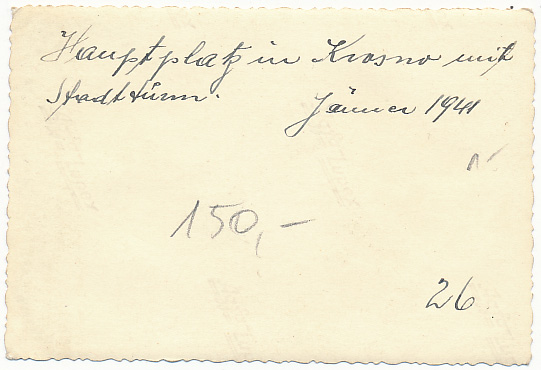 Hauptplatz in Krosno mit
Stadtturm. Jänner 1941
150,-
26